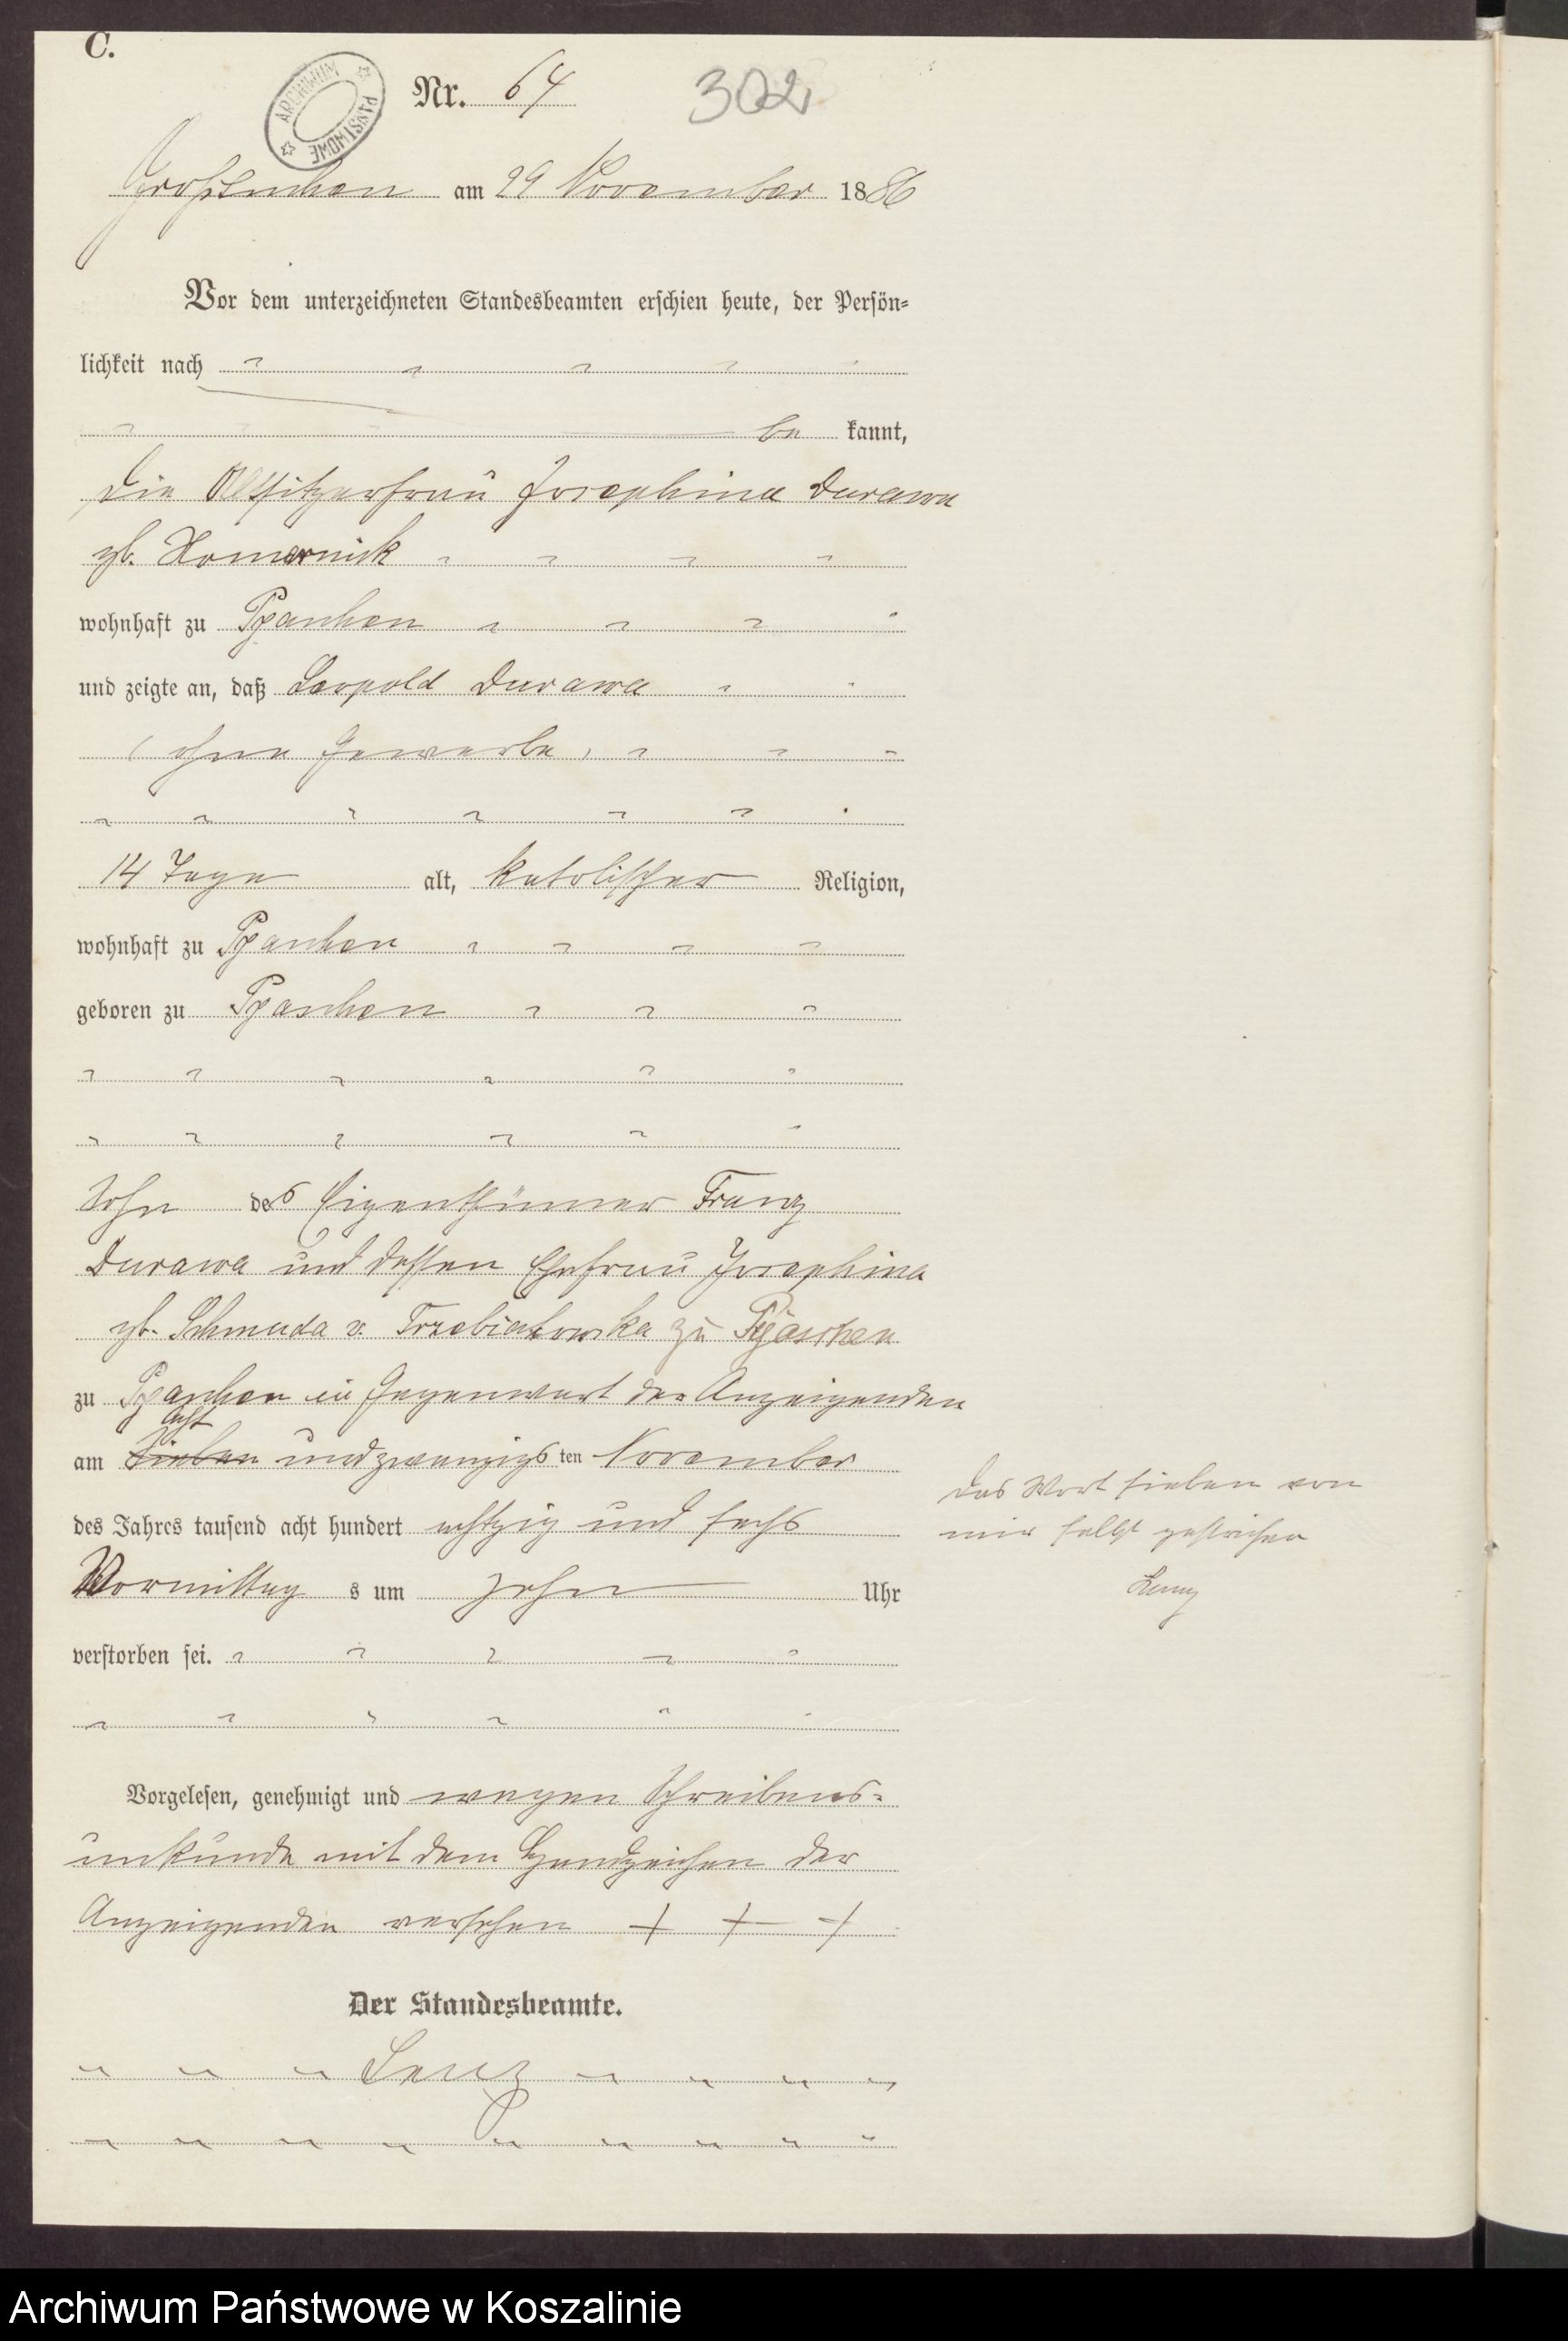 C.
ARCHIWUM PAŃSTWOWE
Nr. 64 302
Großtuchen am 29 November 1886
Vor dem unterzeichneten Standesbeamten erschien heute, der Persön-
lichkeit nach
be kannt,
die Altsitzerfrau Josephine Durawa
gb.
wohnhaft zu Pyaschen
und zeigte an, daß Leopold Durawa
(ohne Gewerbe)
14 Tage alt, katolischer Religion,
wohnhaft zu Pyaschen
geboren zu Pyaschen
Sohn des Eigenthümer Franz
Durawa und dessen Ehefrau Josephine
gb. Schmuda v. Trzebiatowska zu Pyaschen
zu Pyaschen in Gegenwart der Anzeigenden
acht
am sieben undzwanzigsten November
des Jahres tausend acht hundert achtzig und sechs
Das Wort sieben von
mir selbst gestrichen
Lenz
Vormittag s um zehn Uhr
verstorben sei.
Vorgelesen, genehmigt und wegen Schreibens-
unkunde mit dem Handzeichen der
Anzeigenden versehen + + +
Der Standesbeamte.
Lenz
Archiwum Państwowe w Koszalinie